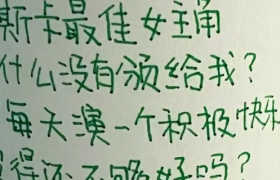 斯卡最佳女主角
什么没有颁给我？
每天演一个积极快乐
得还不够好吗？